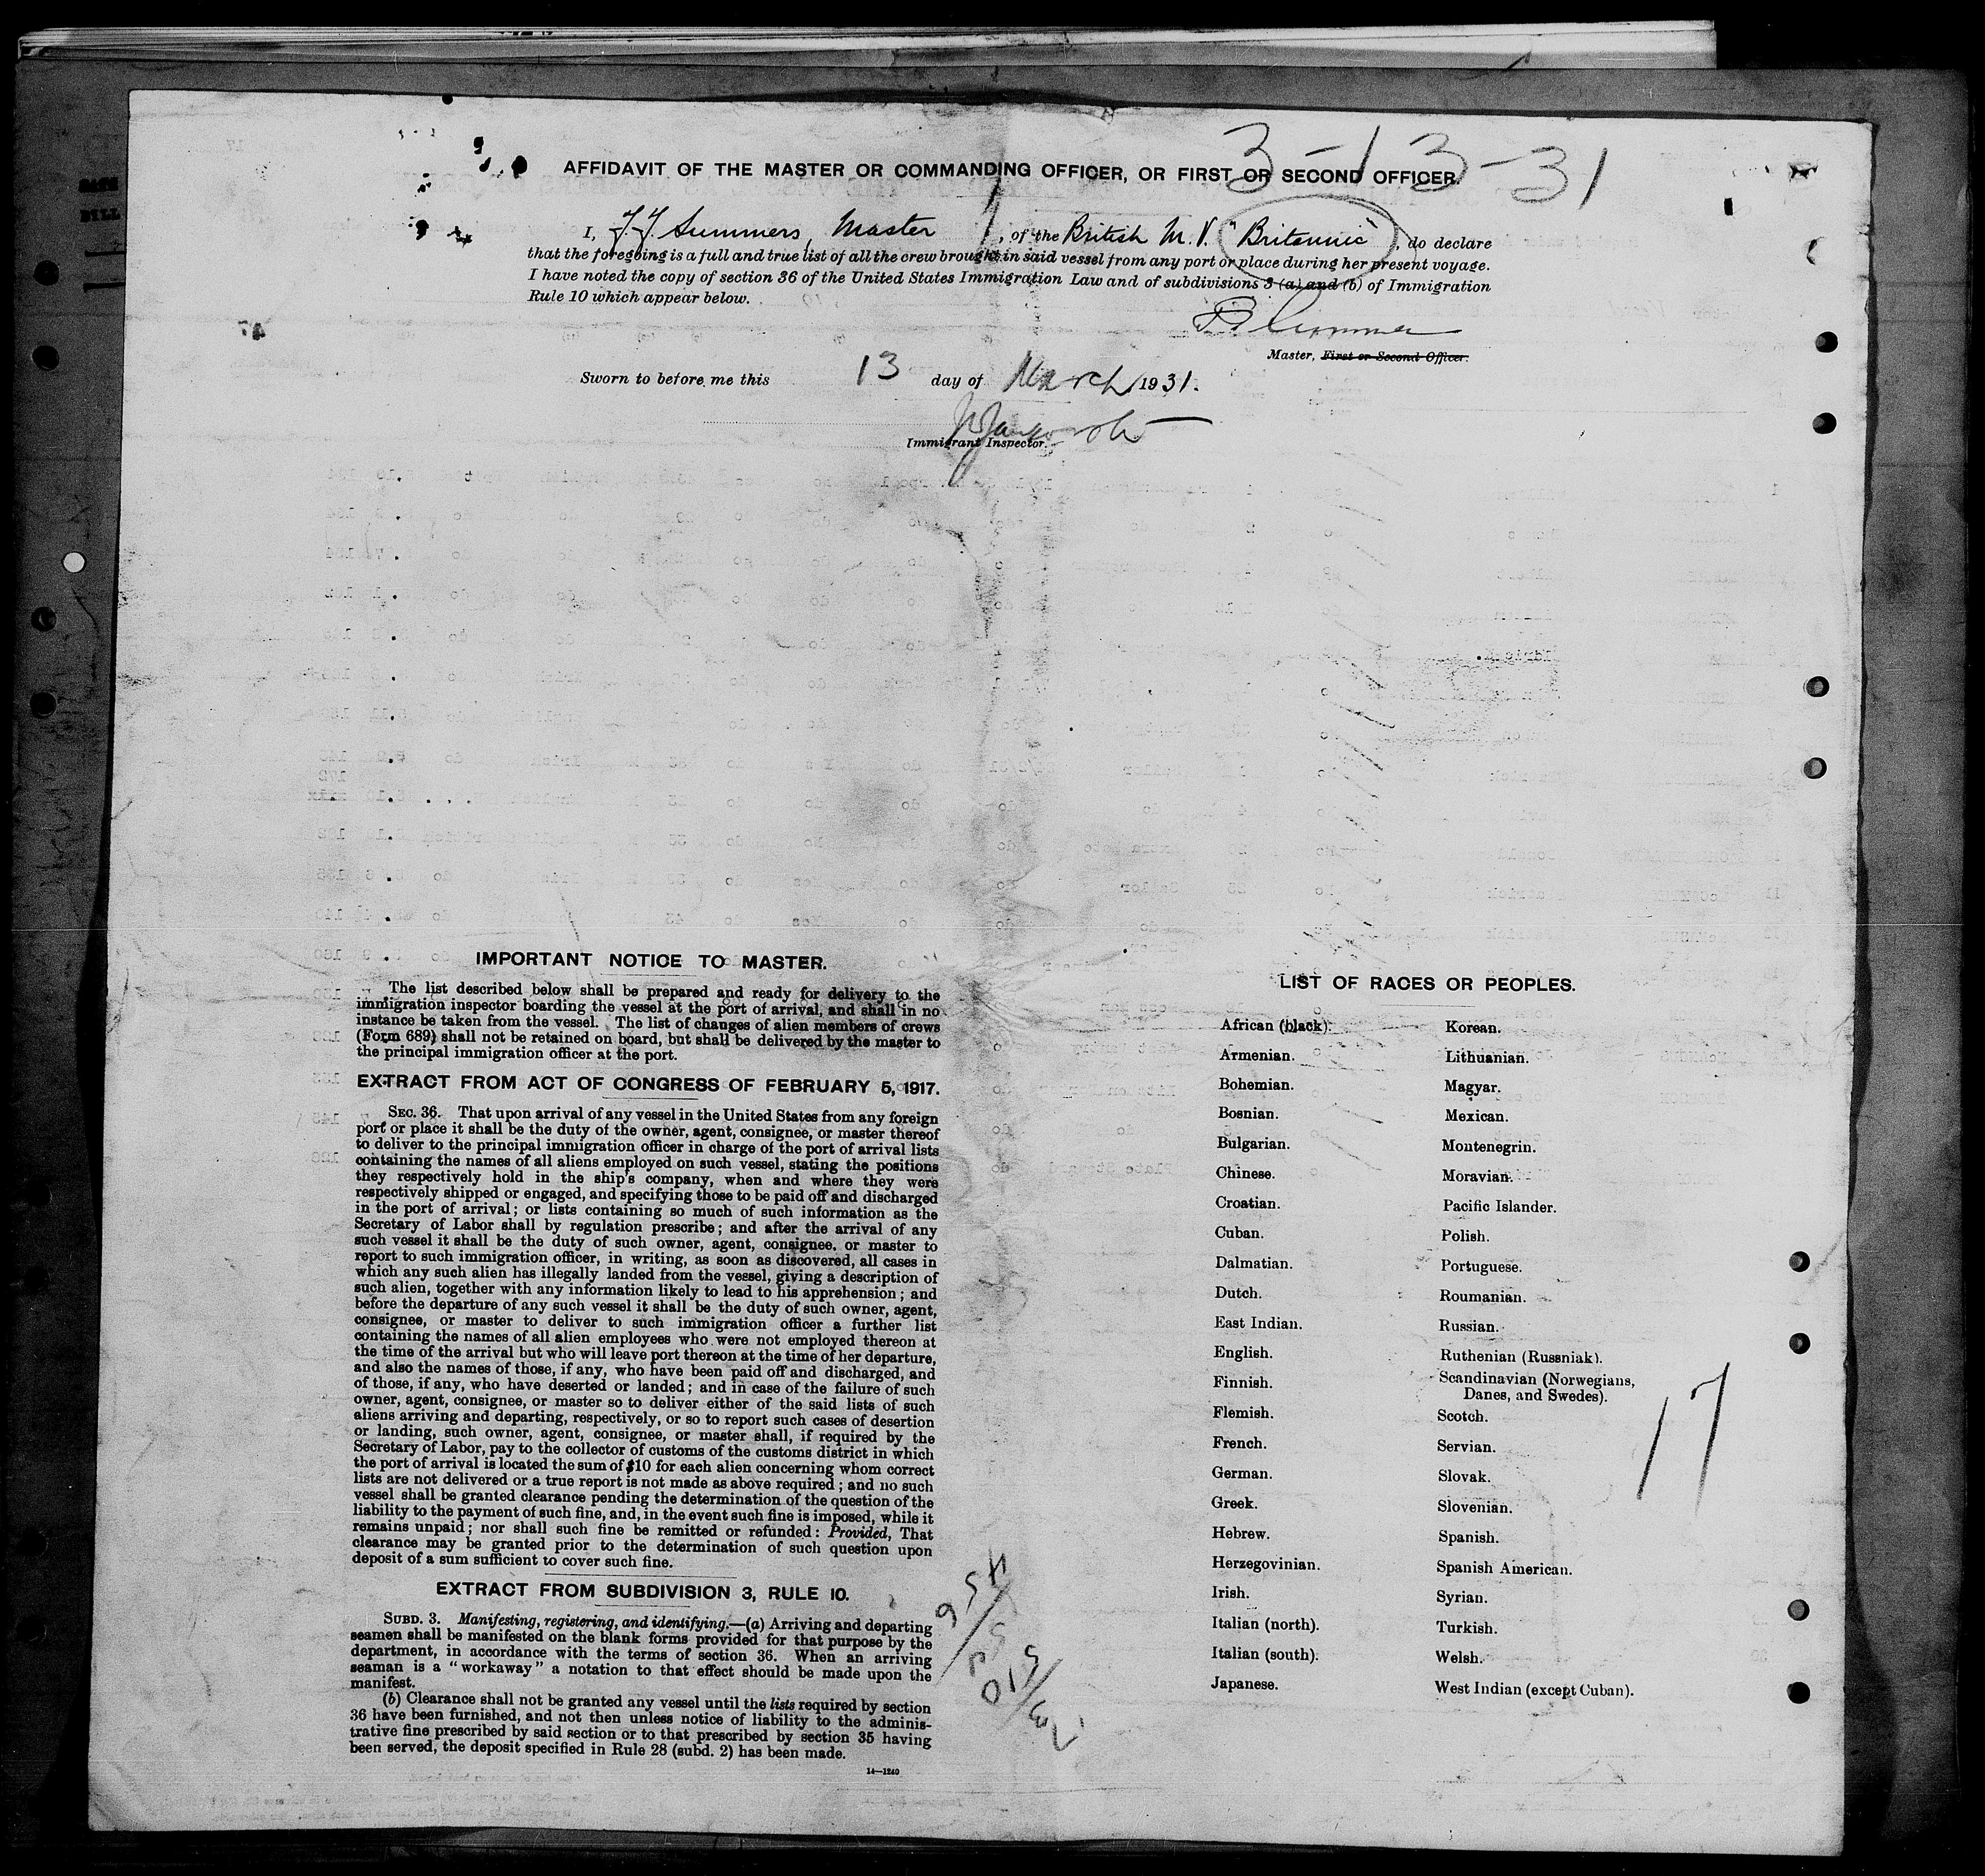 3-13-31
AFFIDAVIT OF THE MASTER OR COMMANDING OFFICER, OR FIRST OR SECOND OFFICER.
I, F.F. Summers, Master, of the British M.V. "Britannic", do declare
that the foregoing is a full and true list of all the crew brought in said vessel from any port or place during her present voyage.
I have noted the copy of section 36 of the United States Immigration Law and of subdivisions 3 (a) and (b) of Immigration
Rule 10 which appear below.
Master, First or Second Officer.
Sworn to before me this 13 day of March, 1931.
Immigrant Inspector.
IMPORTANT NOTICE TO MASTER.
The list described below shall be prepared and ready for delivery to the
immigration inspector boarding the vessel at the port of arrival, and shall in no
instance be taken from the vessel. The list of changes of alien members of crews
(Form 689) shall not be retained on board, but shall be delivered by the master to
the principal immigration officer at the port.
EXTRACT FROM ACT OF CONGRESS OF FEBRUARY 5, 1917.
SEC. 36. That upon arrival of any vessel in the United States from any foreign
port or place it shall be the duty of the owner, agent, consignee, or master thereof
to deliver to the principal immigration officer in charge of the port of arrival lists
containing the names of all aliens employed on such vessel, stating the positions
they respectively hold in the ship's company, when and where they were
respectively shipped or engaged, and specifying those to be paid off and discharged
in the port of arrival; or lists containing so much of such information as the
Secretary of Labor shall by regulation prescribe; and after the arrival of any
such vessel it shall be the duty of such owner, agent, consignee, or master to
report to such immigration officer, in writing, as soon as discovered, all cases in
which any such alien has illegally landed from the vessel, giving a description of
such alien, together with any information likely to lead to his apprehension; and
before the departure of any such vessel it shall be the duty of such owner, agent,
consignee, or master to deliver to such immigration officer a further list
containing the names of all alien employees who were not employed thereon at
the time of the arrival but who will leave port thereon at the time of her departure,
and also the names of those, if any, who have been paid off and discharged, and
of those, if any, who have deserted or landed; and in case of the failure of such
owner, agent, consignee, or master so to deliver either of the said lists of such
aliens arriving and departing, respectively, or so to report such cases of desertion
or landing, such owner, agent, consignee, or master shall, if required by the
Secretary of Labor, pay to the collector of customs of the customs district in which
the port of arrival is located the sum of $10 for each alien concerning whom correct
lists are not delivered or a true report is not made as above required; and no such
vessel shall be granted clearance pending the determination of the question of the
liability to the payment of such fine, and, in the event such fine is imposed, while it
remains unpaid; nor shall such fine be remitted or refunded: Provided, That
clearance may be granted prior to the determination of such question upon
deposit of a sum sufficient to cover such fine.
EXTRACT FROM SUBDIVISION 3, RULE 10.
SUBD. 3. Manifesting, registering, and identifying.—(a) Arriving and departing
seamen shall be manifested on the blank forms provided for that purpose by the
department, in accordance with the terms of section 36. When an arriving
seaman is a "workaway" a notation to that effect should be made upon the
manifest.
(b) Clearance shall not be granted any vessel until the lists required by section
36 have been furnished, and not then unless notice of liability to the adminis-
trative fine prescribed by said section or to that prescribed by section 35 having
been served, the deposit specified in Rule 28 (subd. 2) has been made.
14—1240
LIST OF RACES OR PEOPLES.
African (black).
Armenian.
Bohemian.
Bosnian.
Bulgarian.
Chinese.
Croatian.
Cuban.
Dalmatian.
Dutch.
East Indian.
English.
Finnish.
Flemish.
French.
German.
Greek.
Hebrew.
Herzegovinian.
Irish.
Italian (north).
Italian (south).
Japanese.
Korean.
Lithuanian.
Magyar.
Mexican.
Montenegrin.
Moravian.
Pacific Islander.
Polish.
Portuguese.
Roumanian.
Russian.
Ruthenian (Russniak).
Scandinavian (Norwegians,
Danes, and Swedes).
Scotch.
Servian.
Slovak.
Slovenian.
Spanish.
Spanish American.
Syrian.
Turkish.
Welsh.
West Indian (except Cuban).
17